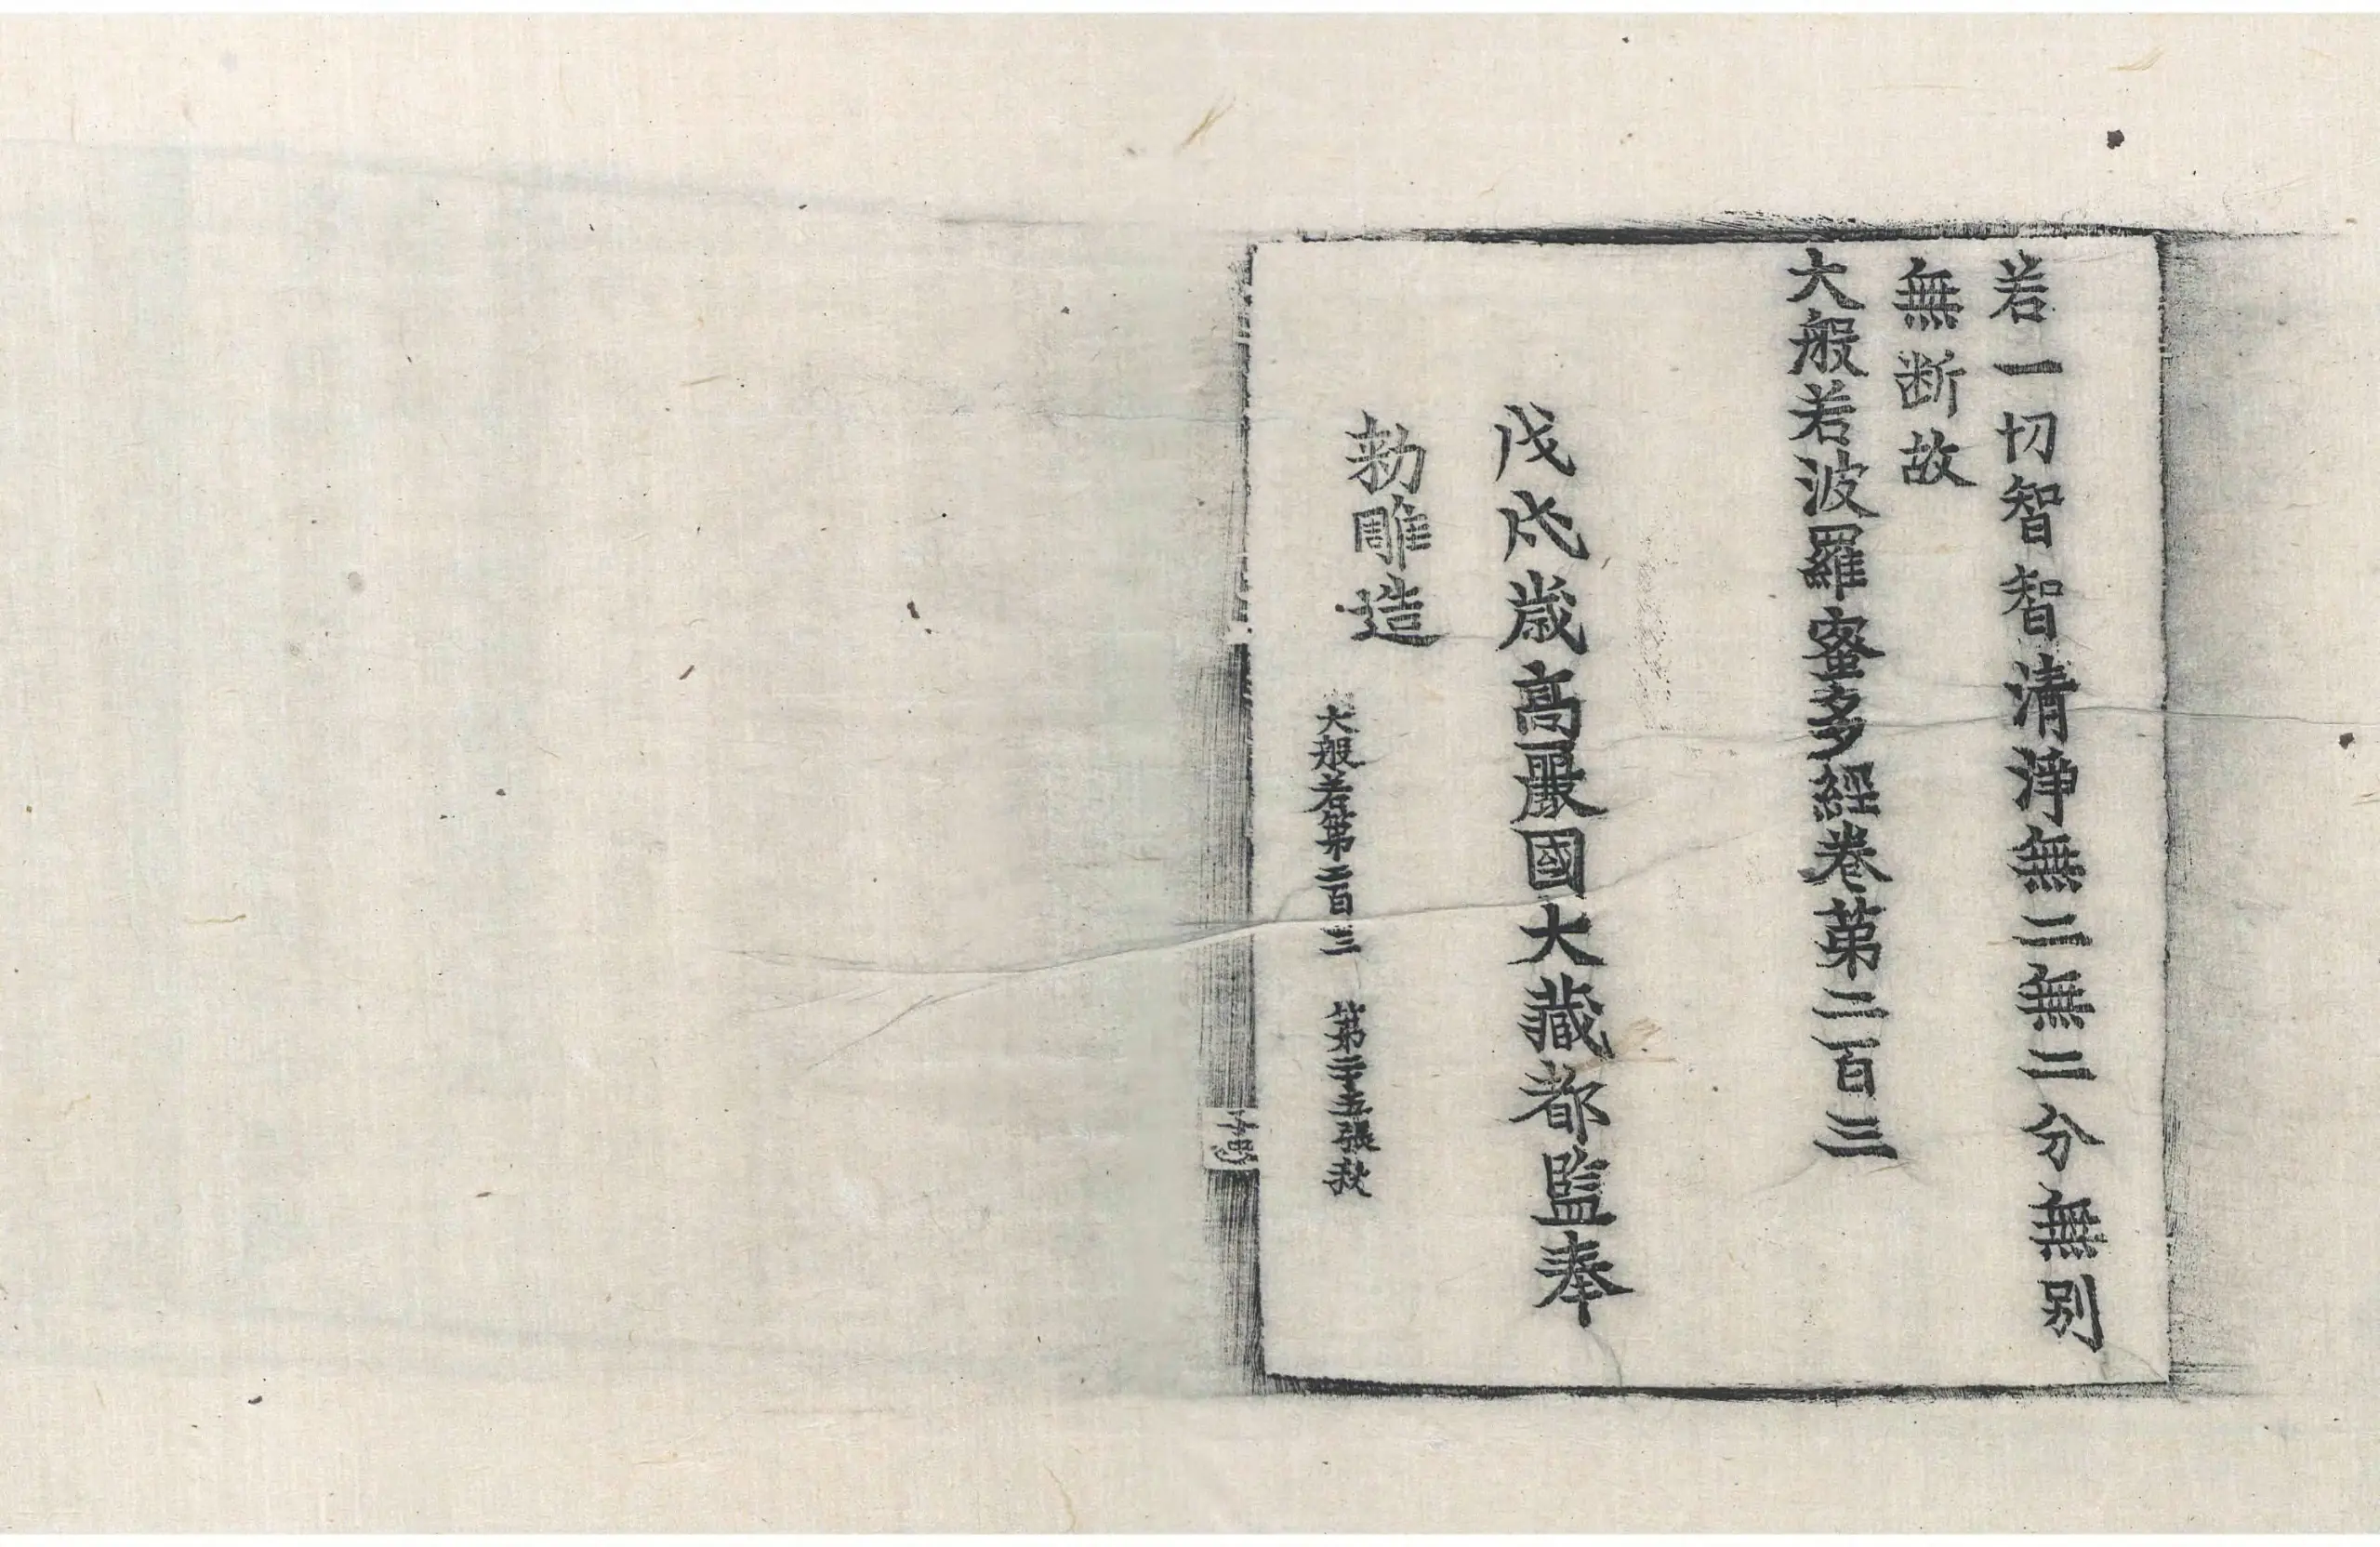 若一切智智清淨無二無二分無別
無断故
大般若波羅蜜多經卷第二百三
戊戌歲高麗國大藏都監奉
勅雕造
大般若第二百三 第二十五張 秋